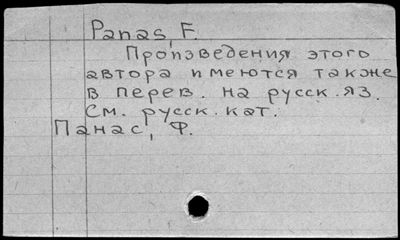 Panas, F.
Произведения этого
автора имеются также
в перев. на русск. яз.
См. русск. кат.
Панас, Ф.